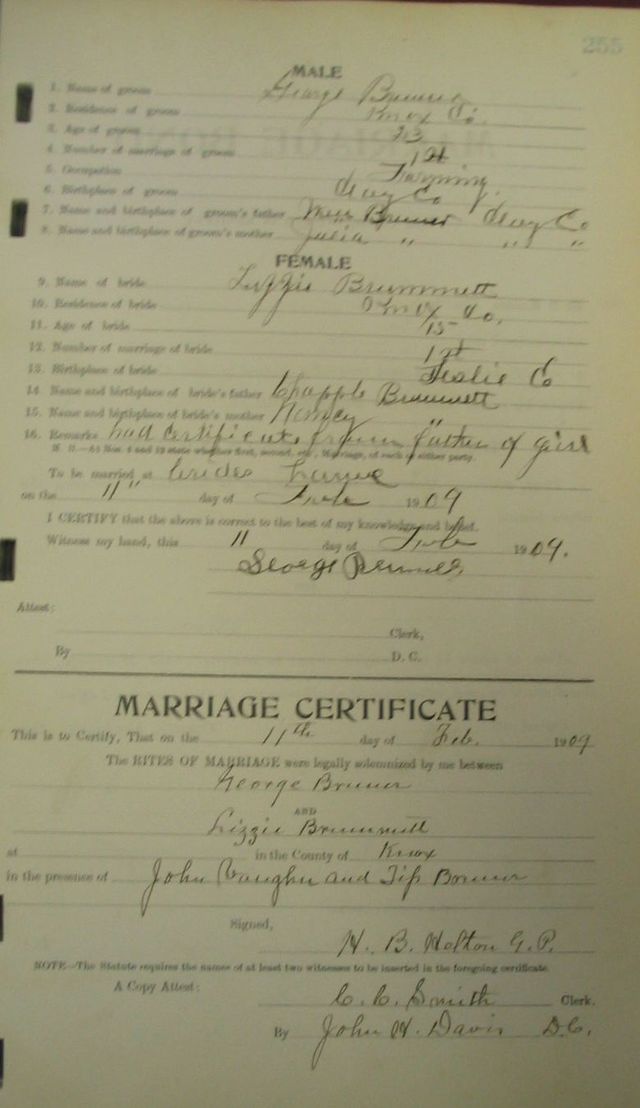 255
MALE
1. Name of groom George Bruner
2. Residence of groom Knox Co.
3. Age of groom 23
4. Number of marriage of groom 1st
5. Occupation Farming.
6. Birthplace of groom Clay Co
7. Name and birthplace of groom's father Bruner Clay Co
8. Name and birthplace of groom's mother Julia " " "
FEMALE
9. Name of bride Lizzie Brummett
10. Residence of bride Knox Co.
11. Age of bride 15
12. Number of marriage of bride 1st
13. Birthplace of bride Leslie Co
14. Name and birthplace of bride's father Chapple Brummett
15. Name and birthplace of bride's mother Nancy "
16. Remarks had certificate from father of girl
N. B.—At Nos. 4 and 12 state whether first, second, etc., marriage, of each or either party.
To be married at brides
on the 11" day of Feb 1909
I CERTIFY that the above is correct to the best of my knowledge and belief.
Witness my hand, this 11 day of Feb 1909.
George Bruner
Attest:
Clerk,
By D. C.
MARRIAGE CERTIFICATE
This is to Certify, That on the 11th day of Feb. 1909
The RITES OF MARRIAGE were legally solemnized by me between
George Bruner
AND
Lizzie Brummett
at in the County of Knox
in the presence of John Vaughn and Tip Bruner
Signed,
H. B. Helton J.P.
NOTE—The Statute requires the names of at least two witnesses to be inserted in the foregoing certificate.
A Copy Attest:
C. C. Smith Clerk.
By John H. Davis D.C.